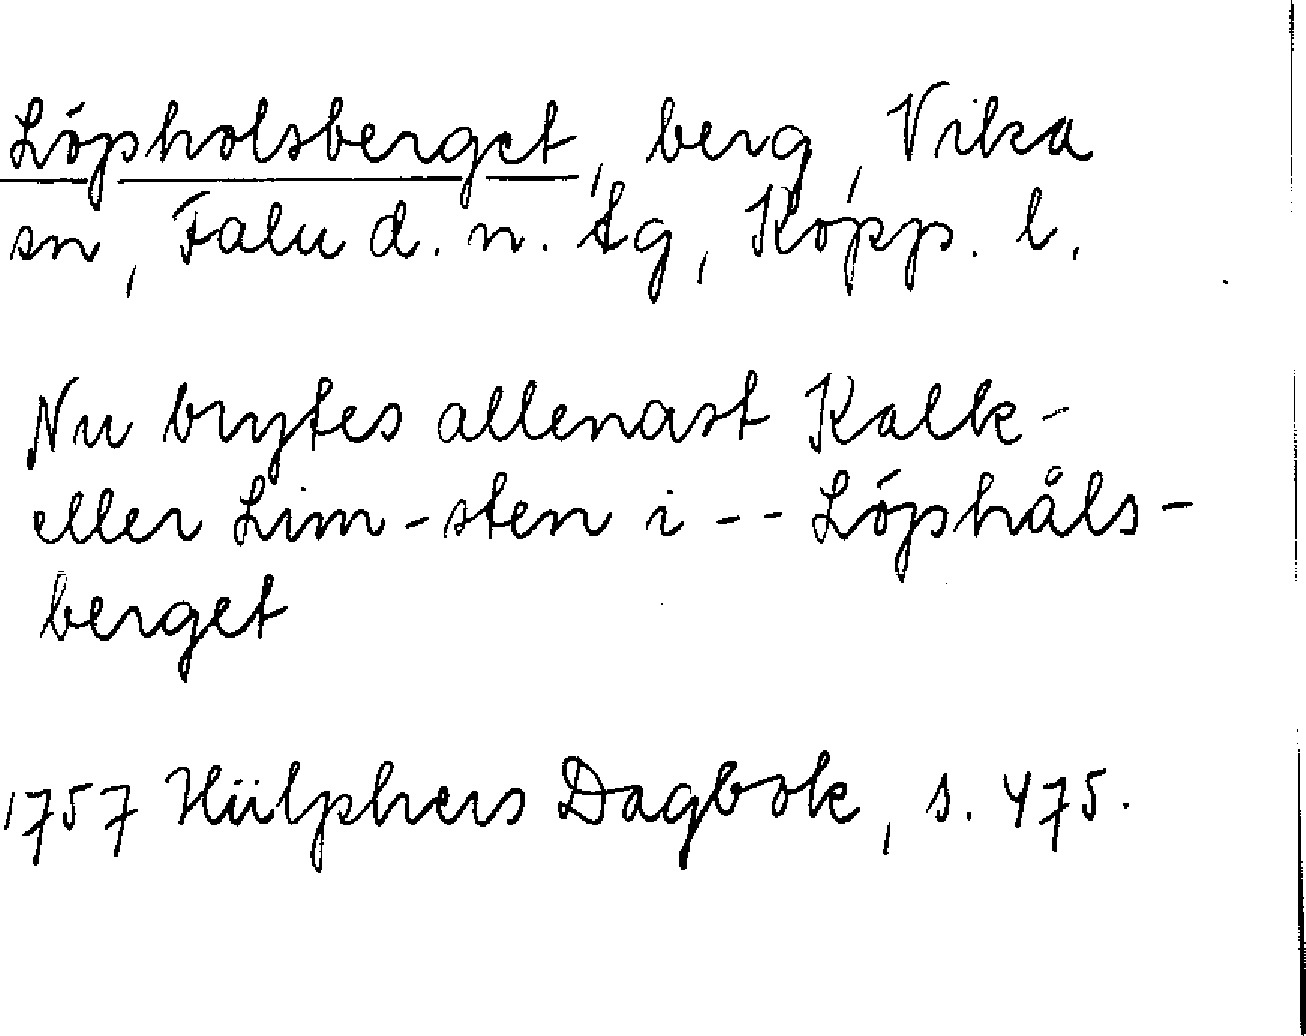 Löpholsberget, berg, Vika
sn, Falu d. n. tg, Kopp. l.
Nu brytes allenast Kalk-
eller Lim-sten i -- Löphåls-
berget
1757 Hülphers Dagbok, s. 475.